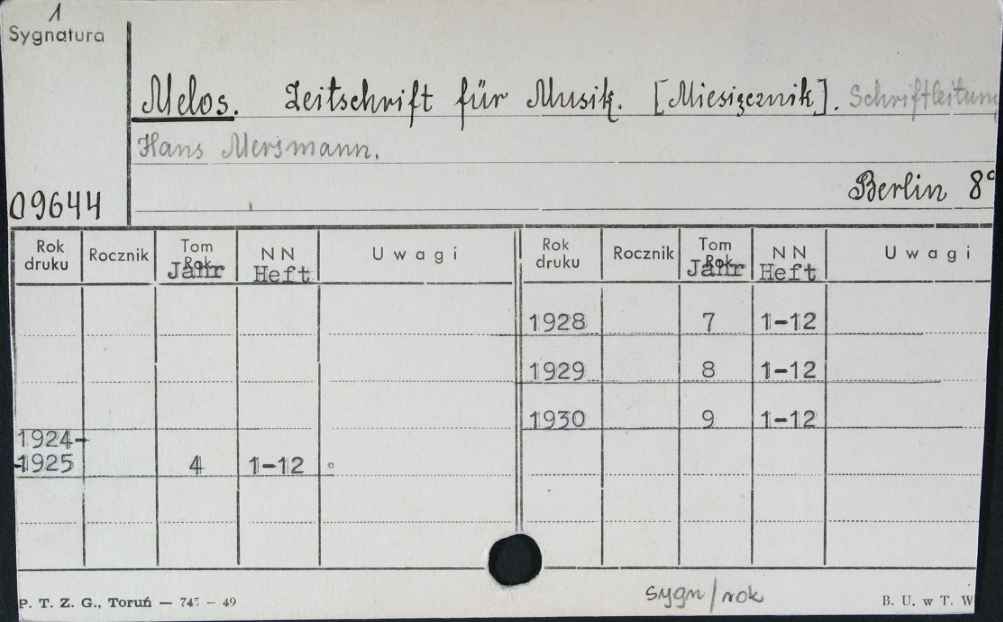 1
Sygnatura
Melos. Zeitschrift für Musik. [Miesięcznik]. Schriftleitung
Hans Mersmann.
09644 Berlin 8°
Rok druku Rocznik Tom Rok Jahr NN Heft Uwagi Rok druku Rocznik Tom Rok Jahr NN Heft Uwagi
1928 7 1-12
1929 8 1-12
1930 9 1-12
1924-
-1925 4 1-12
sygn/rok
P. T. Z. G., Toruń — 747 - 49 B. U. w T. W